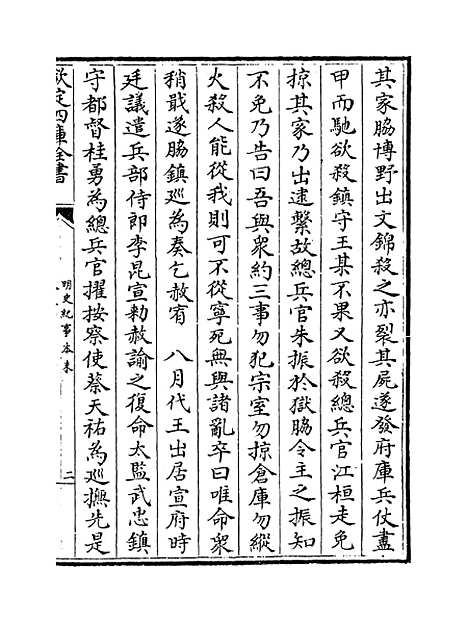 其家脇博野出文錦殺之亦裂其屍遂發府庫兵仗盡
甲而馳欲殺鎮守王某不果又欲殺總兵官江桓走免
掠其家乃出逮繫故總兵官朱振於獄脇令主之振知
不免乃告曰吾與衆約三事勿犯宗室勿掠倉庫勿縱
火殺人能從我則可不從寧死無與諸亂卒曰唯命衆
稍戢遂脇鎮巡為奏乞赦宥　八月代王出居宣府時
廷議遣兵部侍郎李昆宣勅赦諭之復命太監武忠鎮
守都督桂勇為總兵官擢按察使蔡天祐為巡撫先是
欽定四庫全書
明史紀事本末
二